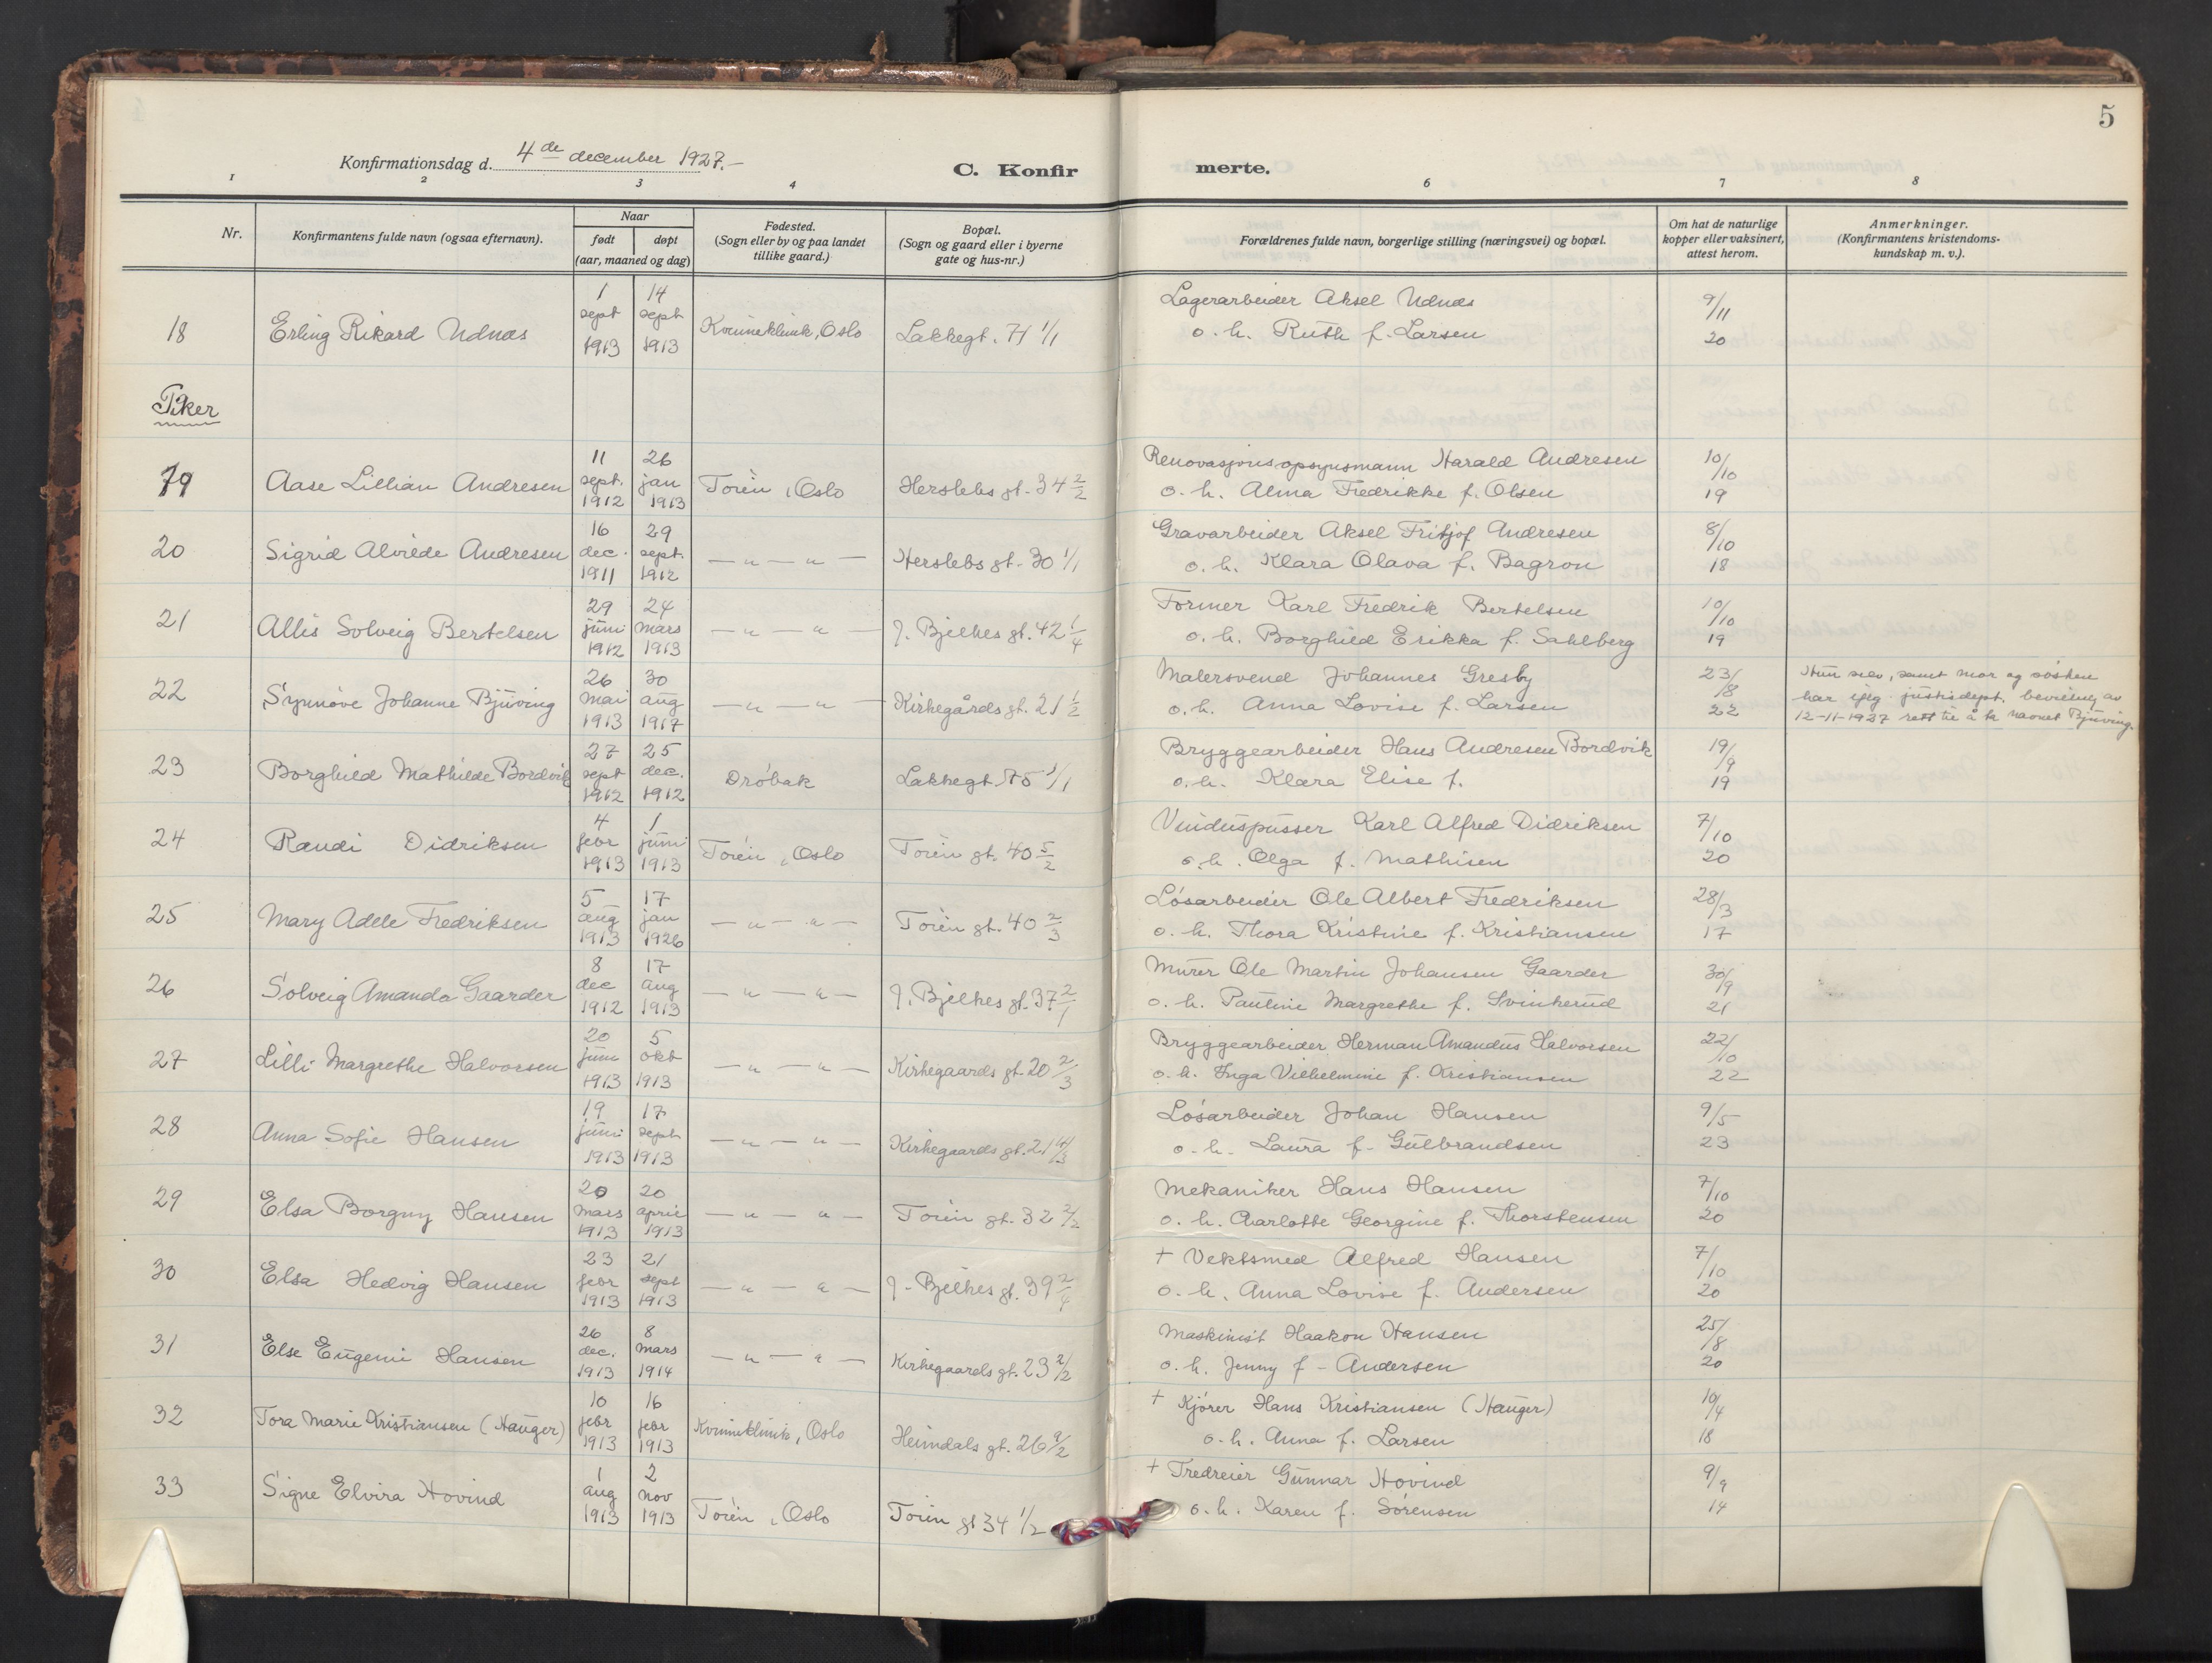 5
Konfirmationsdag d. 4de december 1927.-
C. Konfirmerte.
1 2 3 4 6 7 8
Nr. Konfirmantens fulde navn (ogsaa efternavn). Naar født døpt (aar, maaned og dag) Fødested. (Sogn eller by og paa landet tillike gaard.) Bopæl. (Sogn og gaard eller i byerne gate og hus-nr.) Forældrenes fulde navn, borgerlige stilling (næringsvei) og bopæl. Om hat de naturlige kopper eller vaksinert, attest herom. Anmerkninger. (Konfirmantens kristendomskundskap m. v.).
18 Erling Rikard Udnæs 1 sept 1913 14 sept 1913 Kvinneklinik, Oslo Lakkegt. 71 1/1 Lagerarbeider Aksel Udnæs o. h. Ruth f. Larsen 9/11 20
Piker
19 Aase Lillian Andresen 11 sept. 1912 26 jan 1913 Töien, Oslo Herslebs gt. 34 2/2 Renovasjonsopsynsmann Harald Andresen o. h. Alma Fredrikke f. Olsen 10/10 19
20 Sigrid Alvilde Andresen 16 dec. 1911 29 sept. 1912 — " — " — Herslebs gt. 30 1/1 Gravarbeider Aksel Fritjof Andresen o. h. Klara Olava f. Bagron 8/10 18
21 Allis Solveig Bertelsen 29 juni 1912 24 mars 1913 — " — " — J. Bjelkes gt. 42 1/4 Former Karl Fredrik Bertelsen o. h. Borghild Erikka f. Sahlberg 10/10 19
22 Synnöve Johanne Bjuving 26 mai 1913 30 aug 1917 — " — " — Kirkegårds gt. 21 1/2 Malersvend Johannes Gresby o. h. Anna Lovise f. Larsen 23/8 22 Hun selv, samt mor og søsken har ifølg. justisdept. bevilling av 12-11-1927 rett til å ta navnet Bjuving.
23 Borghild Mathilde Bordvik 27 sept 1912 25 dec. 1912 Dröbak Lakkegt. 75 1/1 Bryggearbeider Hans Andresen Bordvik o. h. Klara Elise f. 19/9 19
24 Randi Didriksen 4 febr 1913 1 juni 1913 Töien, Oslo Töien gt. 40 5/2 Vinduspusser Karl Alfred Didriksen o. h. Olga f. Mathisen 7/10 20
25 Mary Adele Fredriksen 5 aug 1913 17 jan 1926 — " — " — Töien gt. 40 2/3 Lösarbeider Ole Albert Fredriksen o. h. Thora Kristine f. Kristiansen 28/3 17
26 Solveig Amanda Gaarder 8 dec 1912 17 aug 1913 — " — " — J. Bjelkes gt. 37 2/1 Murer Ole Martin Johansen Gaarder o. h. Pauline Margrethe f. Svinkerud 30/9 21
27 Lilli Margrethe Halvorsen 20 juni 1913 5 okt 1913 — " — " — Kirkegaards gt. 20 2/3 Bryggearbeider Herman Amandus Halvorsen o. h. Inga Vilhelmine f. Kristiansen 22/10 22
28 Anna Sofie Hansen 19 juni 1913 17 sept 1913 — " — " — Kirkegaards gt. 21 Lösarbeider Johan Hansen o. h. Laura f. Gulbrandsen 9/5 23
29 Elsa Borgny Hansen 20 mars 1913 20 april 1913 — " — " — Töien gt. 32 2/2 Mekaniker Hans Hansen o. h. Charlotte Georgine f. Thorstensen 7/10 20
30 Elsa Hedvig Hansen 23 febr 1913 21 sept 1913 — " — " — J. Bjelkes gt. 39 2/4 + Vektsmed Alfred Hansen o. h. Anna Lovise f. Andersen 7/10 20
31 Else Eugenie Hansen 26 dec. 1913 8 mars 1914 — " — " — Kirkegaards gt. 23 2/2 Maskinist Haakon Hansen o. h. Jenny f. Andersen 25/8 20
32 Tora Marie Kristiansen (Hauger) 10 febr 1913 16 febr 1913 Kvinneklinik, Oslo Heimdals gt. 26 + Kjörer Hans Kristiansen (Hauger) o. h. Anna f. Larsen 10/4 18
33 Signe Elvira Hovind 1 aug 1913 2 nov 1913 Töien, Oslo Töien gt 34 1/2 + Tredreier Gunnar Hovind o. h. Karen f. Sörensen 9/9 14